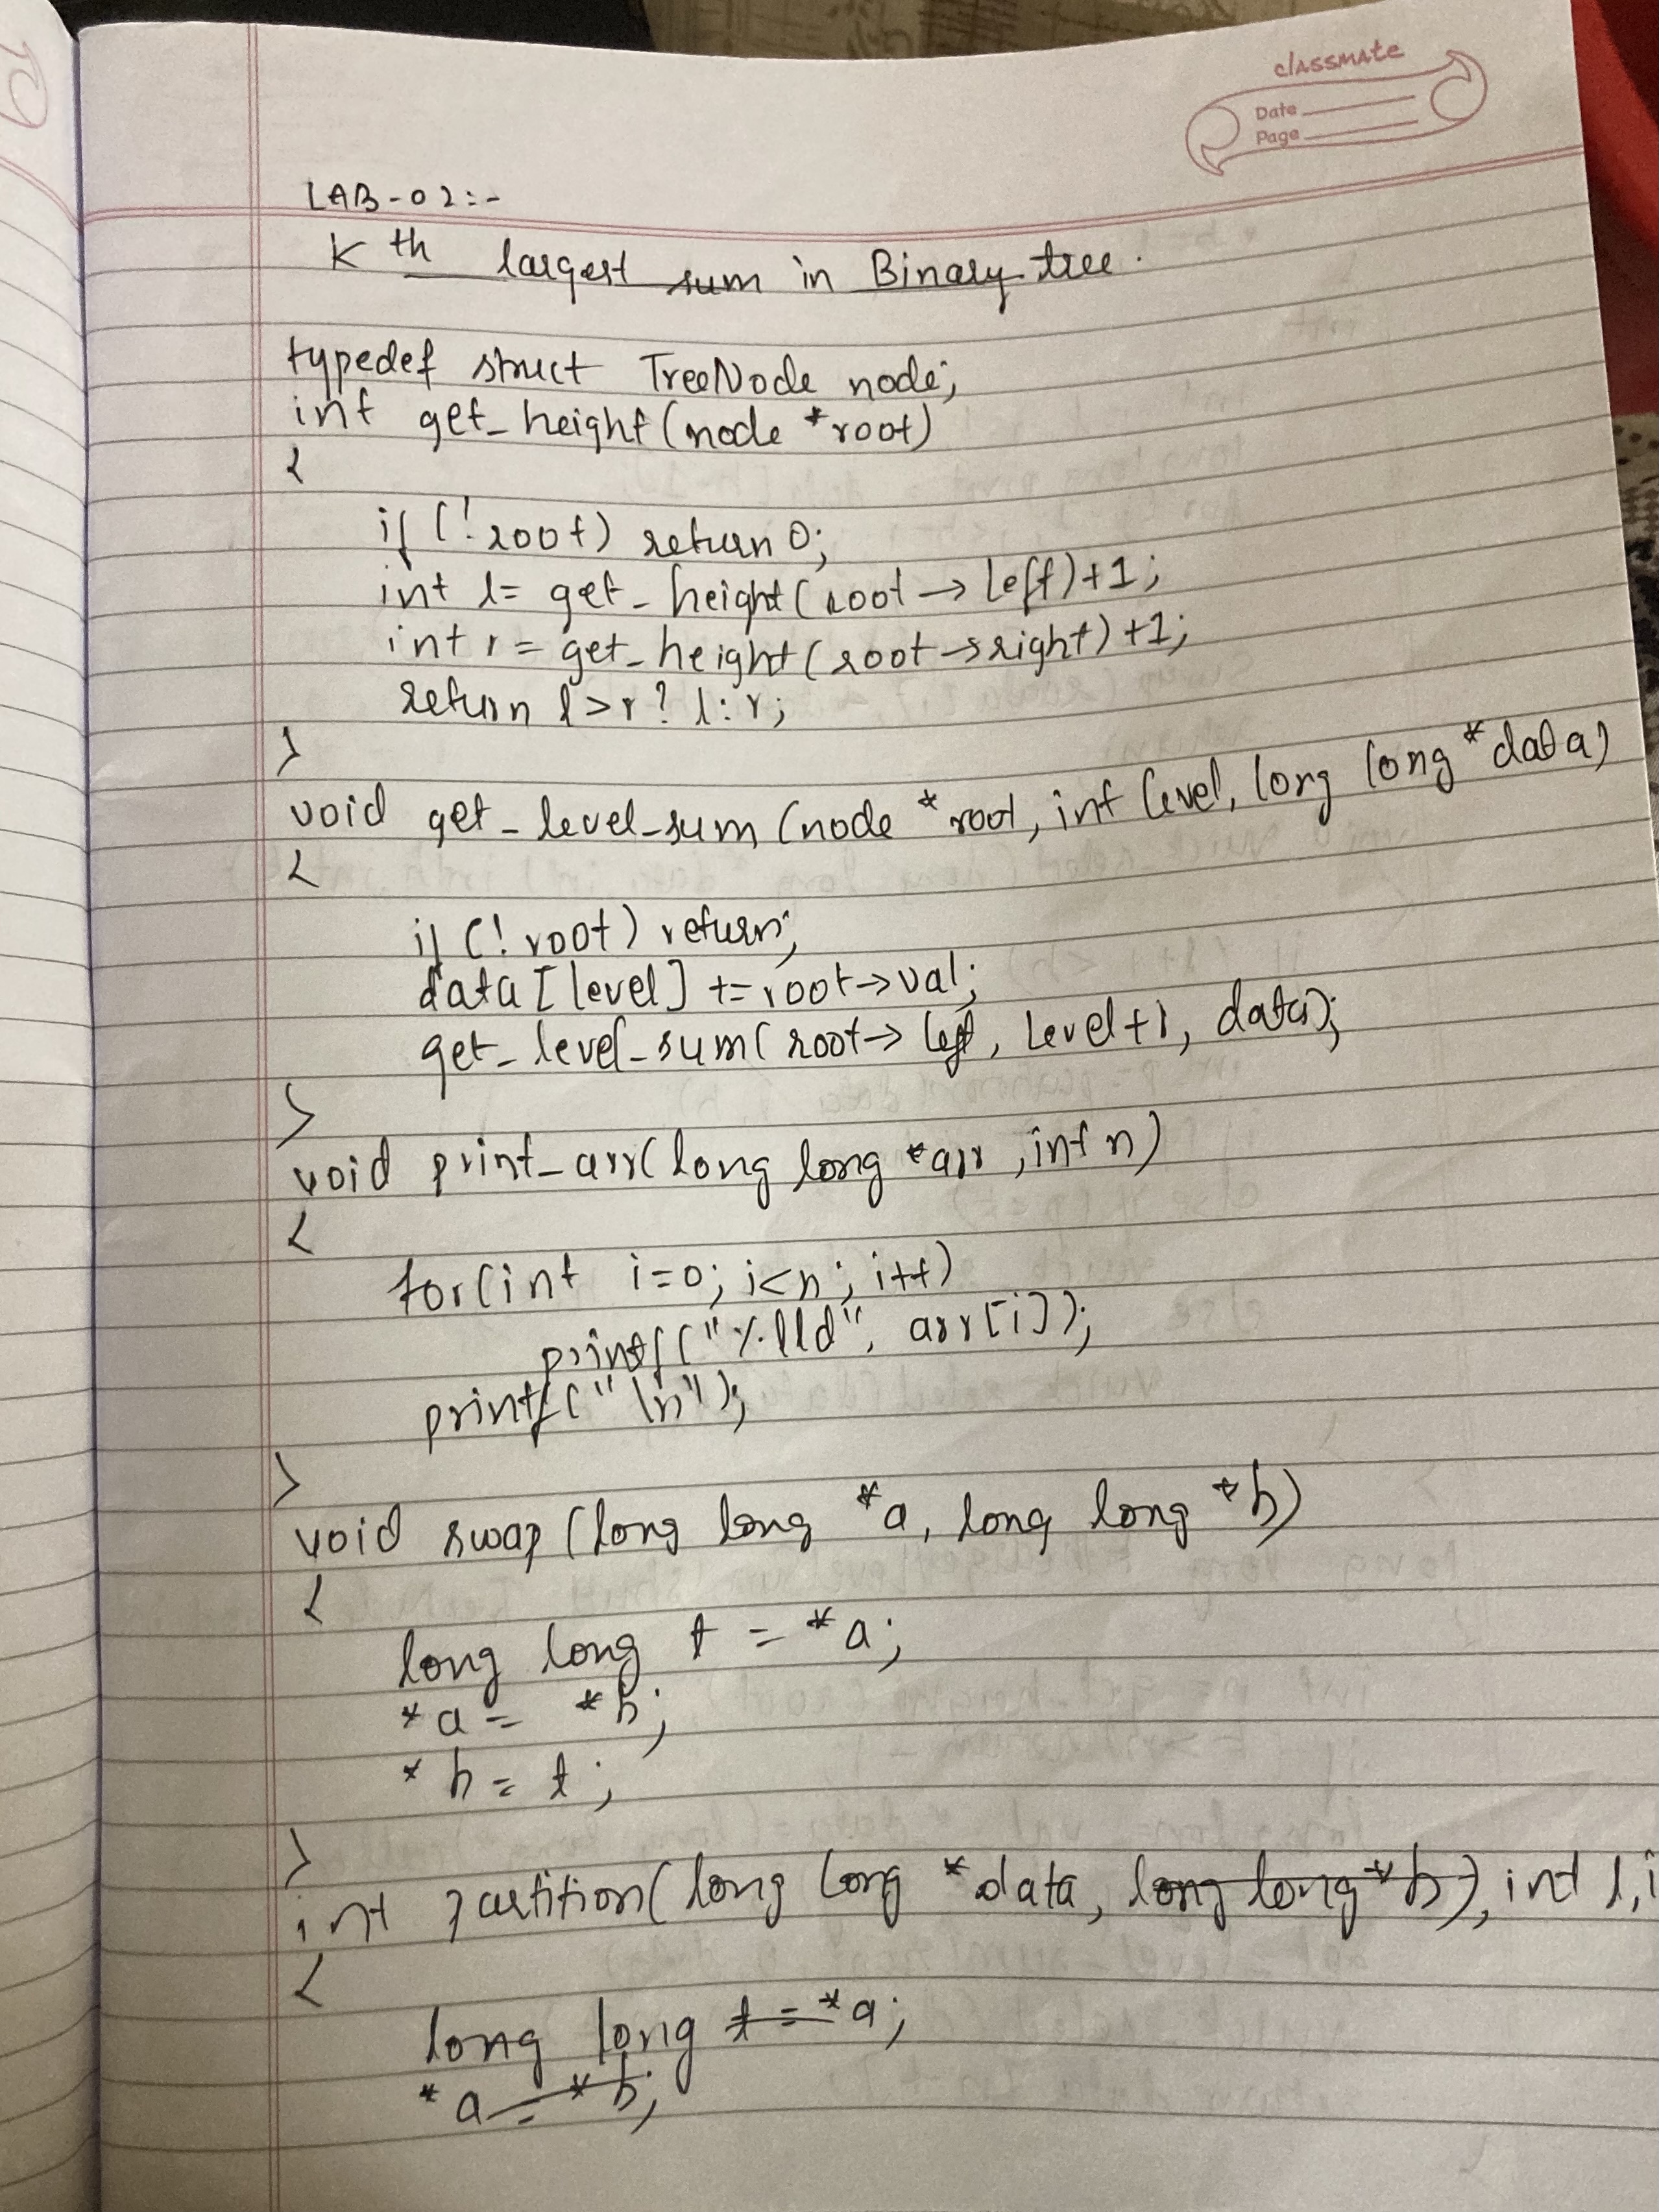 classmate
Date
Page
LAB-02:-
Kth largest sum in Binary tree.
typedef struct TreeNode node;
int get_height(node *root)
{
if (!root) return 0;
int l= get_height(root→left)+1;
int r= get_height(root→right)+1;
return l>r? l:r;
}
void get_level_sum(node *root, int level, long long *data)
{
if (!root) return;
data[level] += root→val;
get_level_sum(root→left, level+1, data);
}
void print_arr(long long *arr, int n)
{
for(int i=0; i<n; i++)
printf("%lld", arr[i]);
printf("\n");
}
void swap(long long *a, long long *b)
{
long long t = *a;
*a = *b;
*b = t;
}
int partition(long long *data, long long *b), int l, i
{
long long t = *a;
*a = *b;